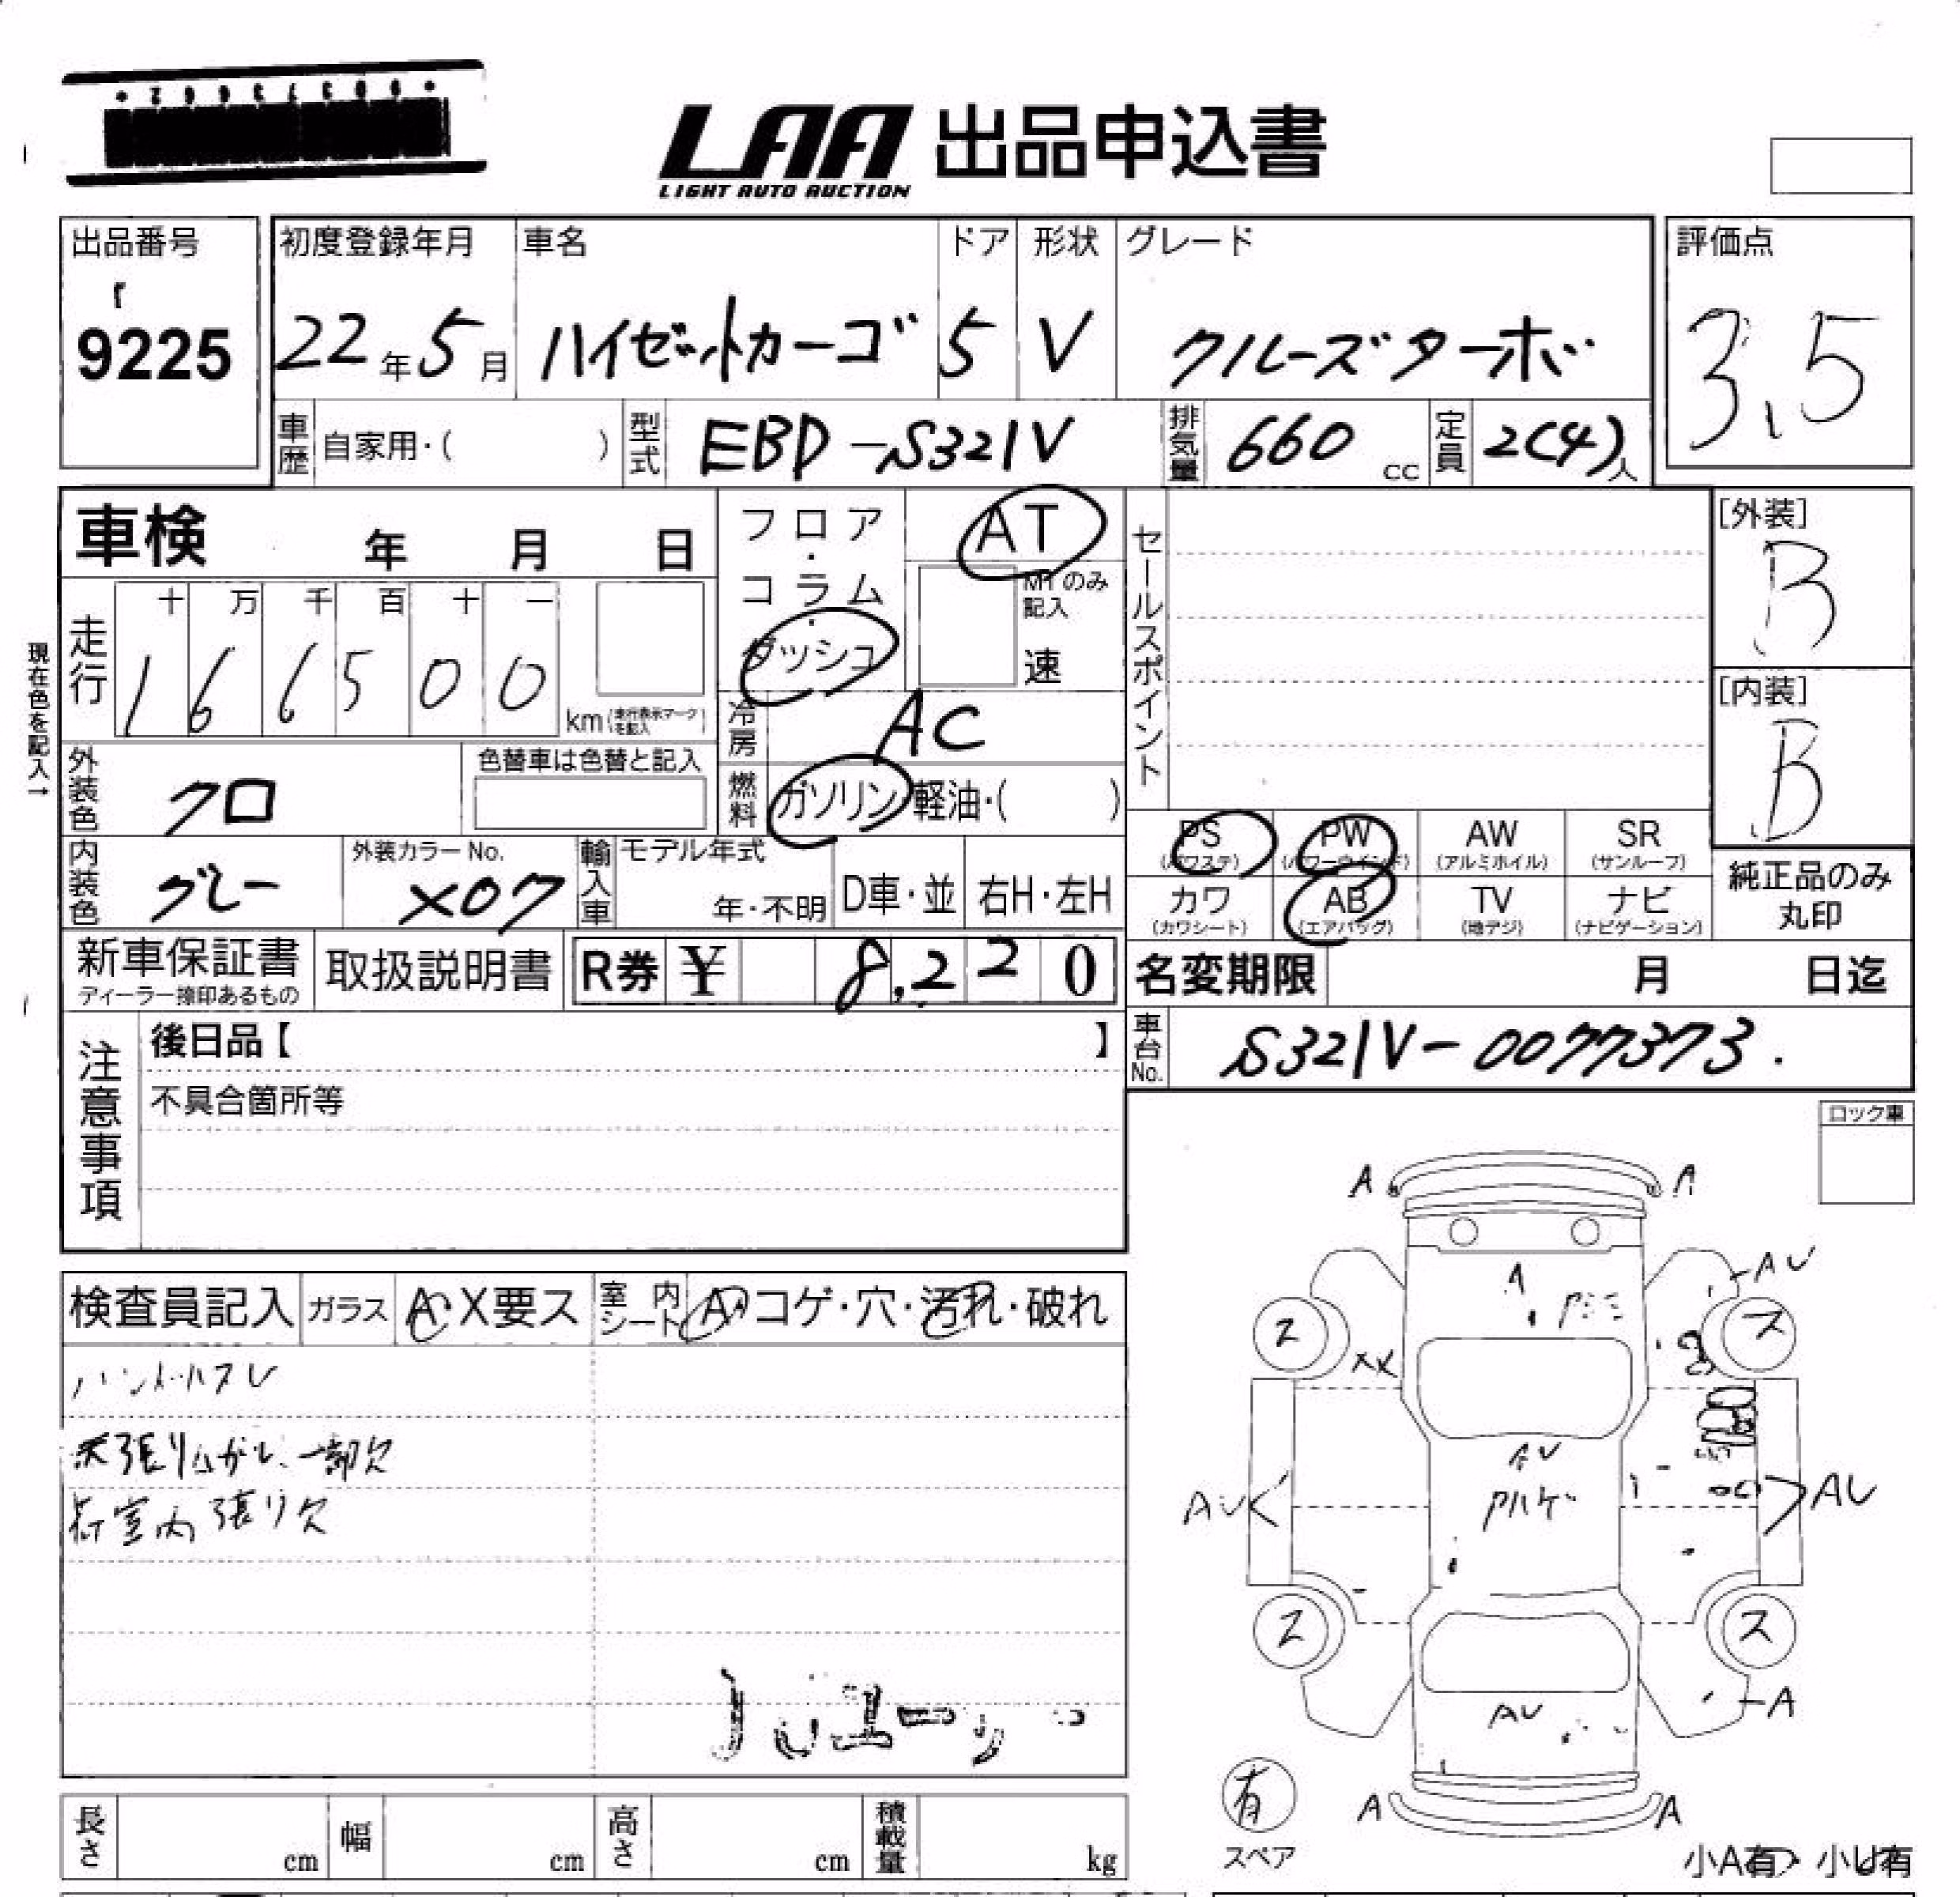 LAA 出品申込書
LIGHT AUTO AUCTION
出品番号
9225
初度登録年月
22年5月
車名
ハイゼットカーゴ
ドア
5
形状
V
グレード
クルーズターボ
評価点
3.5
車歴 自家用・( )
型式 EBD-S321V
排気量 660 cc
定員 2(4)人
車検 年 月 日
フロア・コラム・ダッシュ
AT
MTのみ記入
速
セールスポイント
[外装]
B
[内装]
B
現在色を記入→
走行 十 万 千 百 十 一
166500 km (走行表示マークを記入)
冷房 AC
外装色 クロ
色替車は色替と記入
燃料 ガソリン 軽油・( )
内装色 グレー
外装カラーNo. X07
輸入車 モデル年式 年・不明 D車・並 右H・左H
PS (パワステ) PW (パワーウインド) AW (アルミホイル) SR (サンルーフ)
カワ (カワシート) AB (エアバッグ) TV (地デジ) ナビ (ナビゲーション)
純正品のみ丸印
新車保証書
ディーラー捺印あるもの
取扱説明書
R券 ¥ 8,220
名変期限 月 日迄
車台No. S321V-0077373.
注意事項
後日品【 】
不具合箇所等
ロック車
検査員記入 ガラス A X要ス 室内シート A コゲ・穴・汚れ・破れ
ハンドルスレ
天張りはがし、一部欠
荷室内張り欠
A A
A
AV
ス ス
XX
AV
AV AV
Aハゲ
ス ス
A
AV
有
スペア
A A
小A有・小U有
長さ cm 幅 cm 高さ cm 積載量 kg